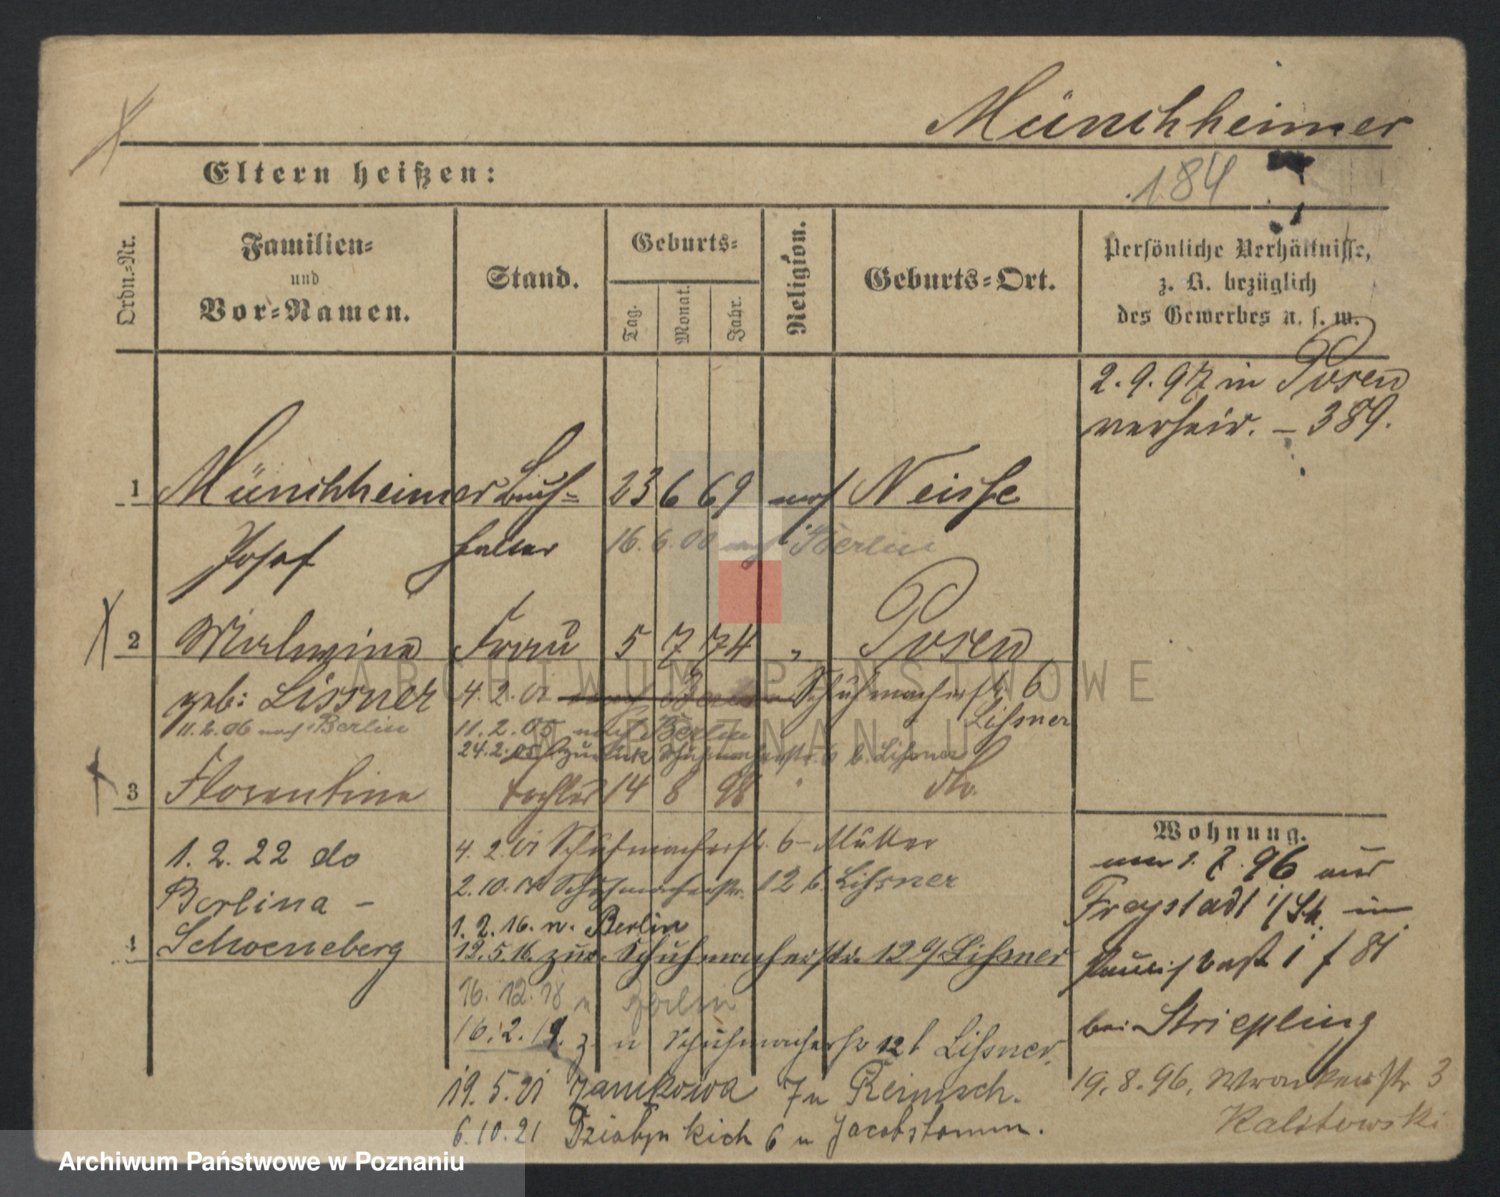 Münchheimer
184
Eltern heißen:
Ordn.-Nr.
Familien-
und
Vor-Namen.
Stand.
Geburts-
Tag.
Monat.
Jahr.
Religion.
Geburts-Ort.
Persönliche Verhältnisse,
z. B. bezüglich
des Gewerbes u. s. w.
2.9.97 in Posen
verheir. – 389.
1 Münchheimer Buch- 23 6 69 mos Neisse
Josef halter 16.6.00 nach Berlin
2 Malwine Frau 5 7 74 " Posen
geb: Lissner 4.2.01 nach Berlin Schuhmacherstr. 6
Lissner
11.2.06 nach Berlin 11.2.05 nach Berlin
24.2.05 zurück Schuhmacherstr. 6 b. Lissner
3 Florentine Tochter 14 8 98 " do
1.2.22 do
Berlina -
Schoeneberg
4
4.2.01 Schuhmacherstr. 6 - Mutter
2.10.01 Schuhmacherstr. 12 b. Lissner
1.2.16. n. Berlin
19.5.16. zur. Schuhmacherstr. 12 Lissner
16.12.18 n Berlin
16.2.19. z. Schuhmacherstr 12 Lissner.
19.5.21 Zamkowa 7
6.10.21
Wohnung.
7.96 aus
Freystadt
bei Striepling
19.8.96. Wronkerstr 3
ARCHIWUM PAŃSTWOWE
W POZNANIU
Archiwum Państwowe w Poznaniu